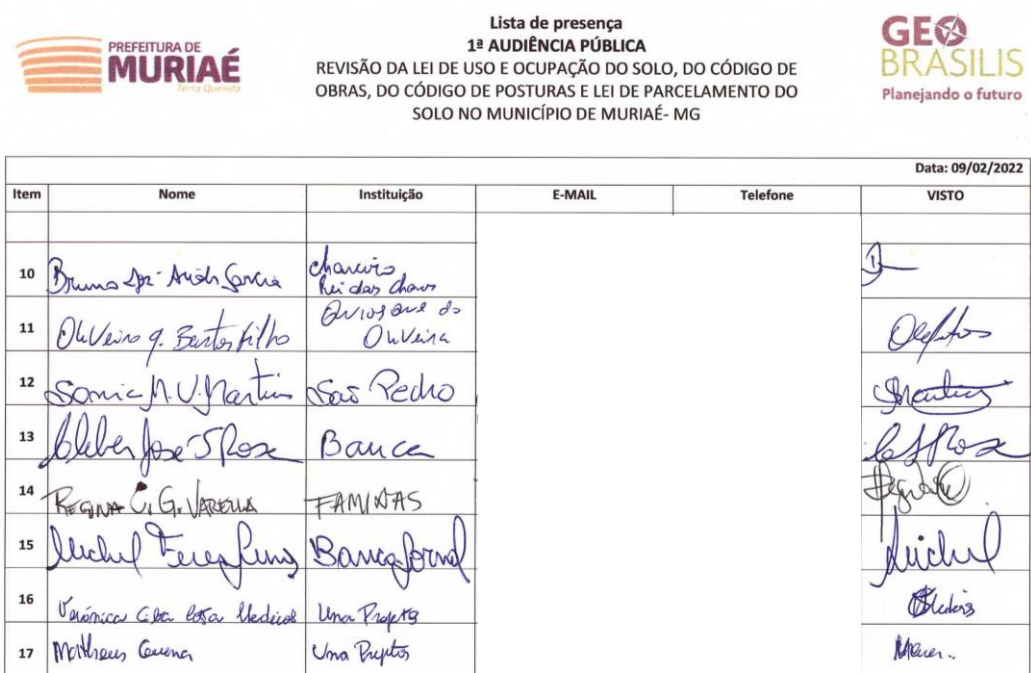 PREFEITURA DE
MURIAÉ
Terra Querida
Lista de presença
1ª AUDIÊNCIA PÚBLICA
REVISÃO DA LEI DE USO E OCUPAÇÃO DO SOLO, DO CÓDIGO DE
OBRAS, DO CÓDIGO DE POSTURAS E LEI DE PARCELAMENTO DO
SOLO NO MUNICÍPIO DE MURIAÉ- MG
GEO
BRASILIS
Planejando o futuro
Data: 09/02/2022
Item Nome Instituição E-MAIL Telefone VISTO
10 Bruno Garcia Chaveiro
Rei das Chaves
11 Oliveiro Filho Quiosque do
Oliveira
12 Sonia M. V. Martins São Pedro Martins
13 Cleber José S Rosa Banca
14 REGINA C. G. VARELLA FAMINAS
15 Michel Banca Jornal Michel
16 Verônica Medeiros Una Projetos
17 Matheus Una Projetos